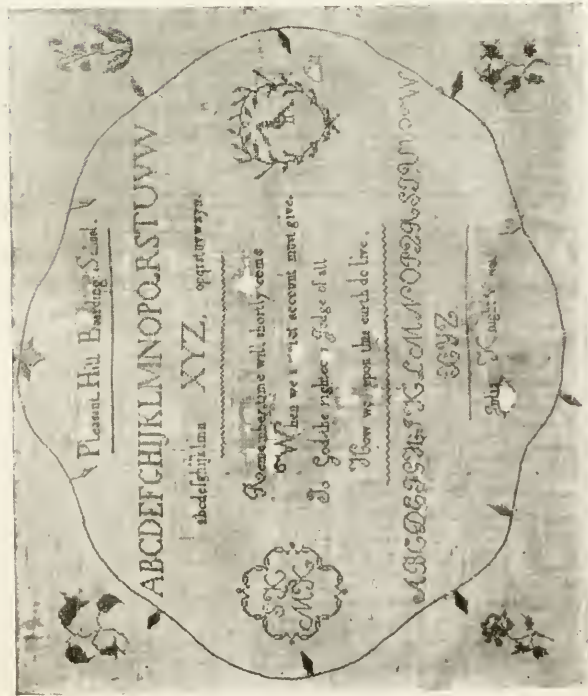 Pleasant Hill Boarding School.
ABCDEFGHIJKLMNOPQRSTUVW
abcdefghijklmn XYZ, opqrstuvwxyz.
Remember time will shortly come
When we a account must give.
To God the Judge of all
How we uppon this earth do live.
ABCDEFGHIJKLMNOPQRSTUVW
XYZ
SK
MK
Knight's